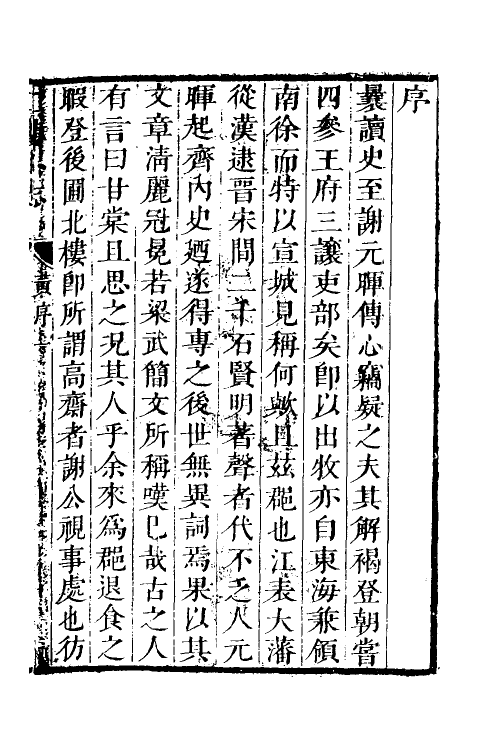 序
曩讀史至謝元暉傳心竊疑之夫其解褐登朝嘗
四參王府三讓吏部矣卽以出牧亦自東海兼領
南徐而特以宣城見稱何歟且茲郡也江表大藩
從漢逮晉宋間二千石賢明著聲者代不乏人元
暉起齊內史廼遂得專之後世無異詞焉果以其
文章淸麗冠冕若梁武簡文所稱嘆已哉古之人
有言曰甘棠且思之况其人乎余來為郡退食之
暇登後圃北樓卽所謂高齋者謝公視事處也彷
序